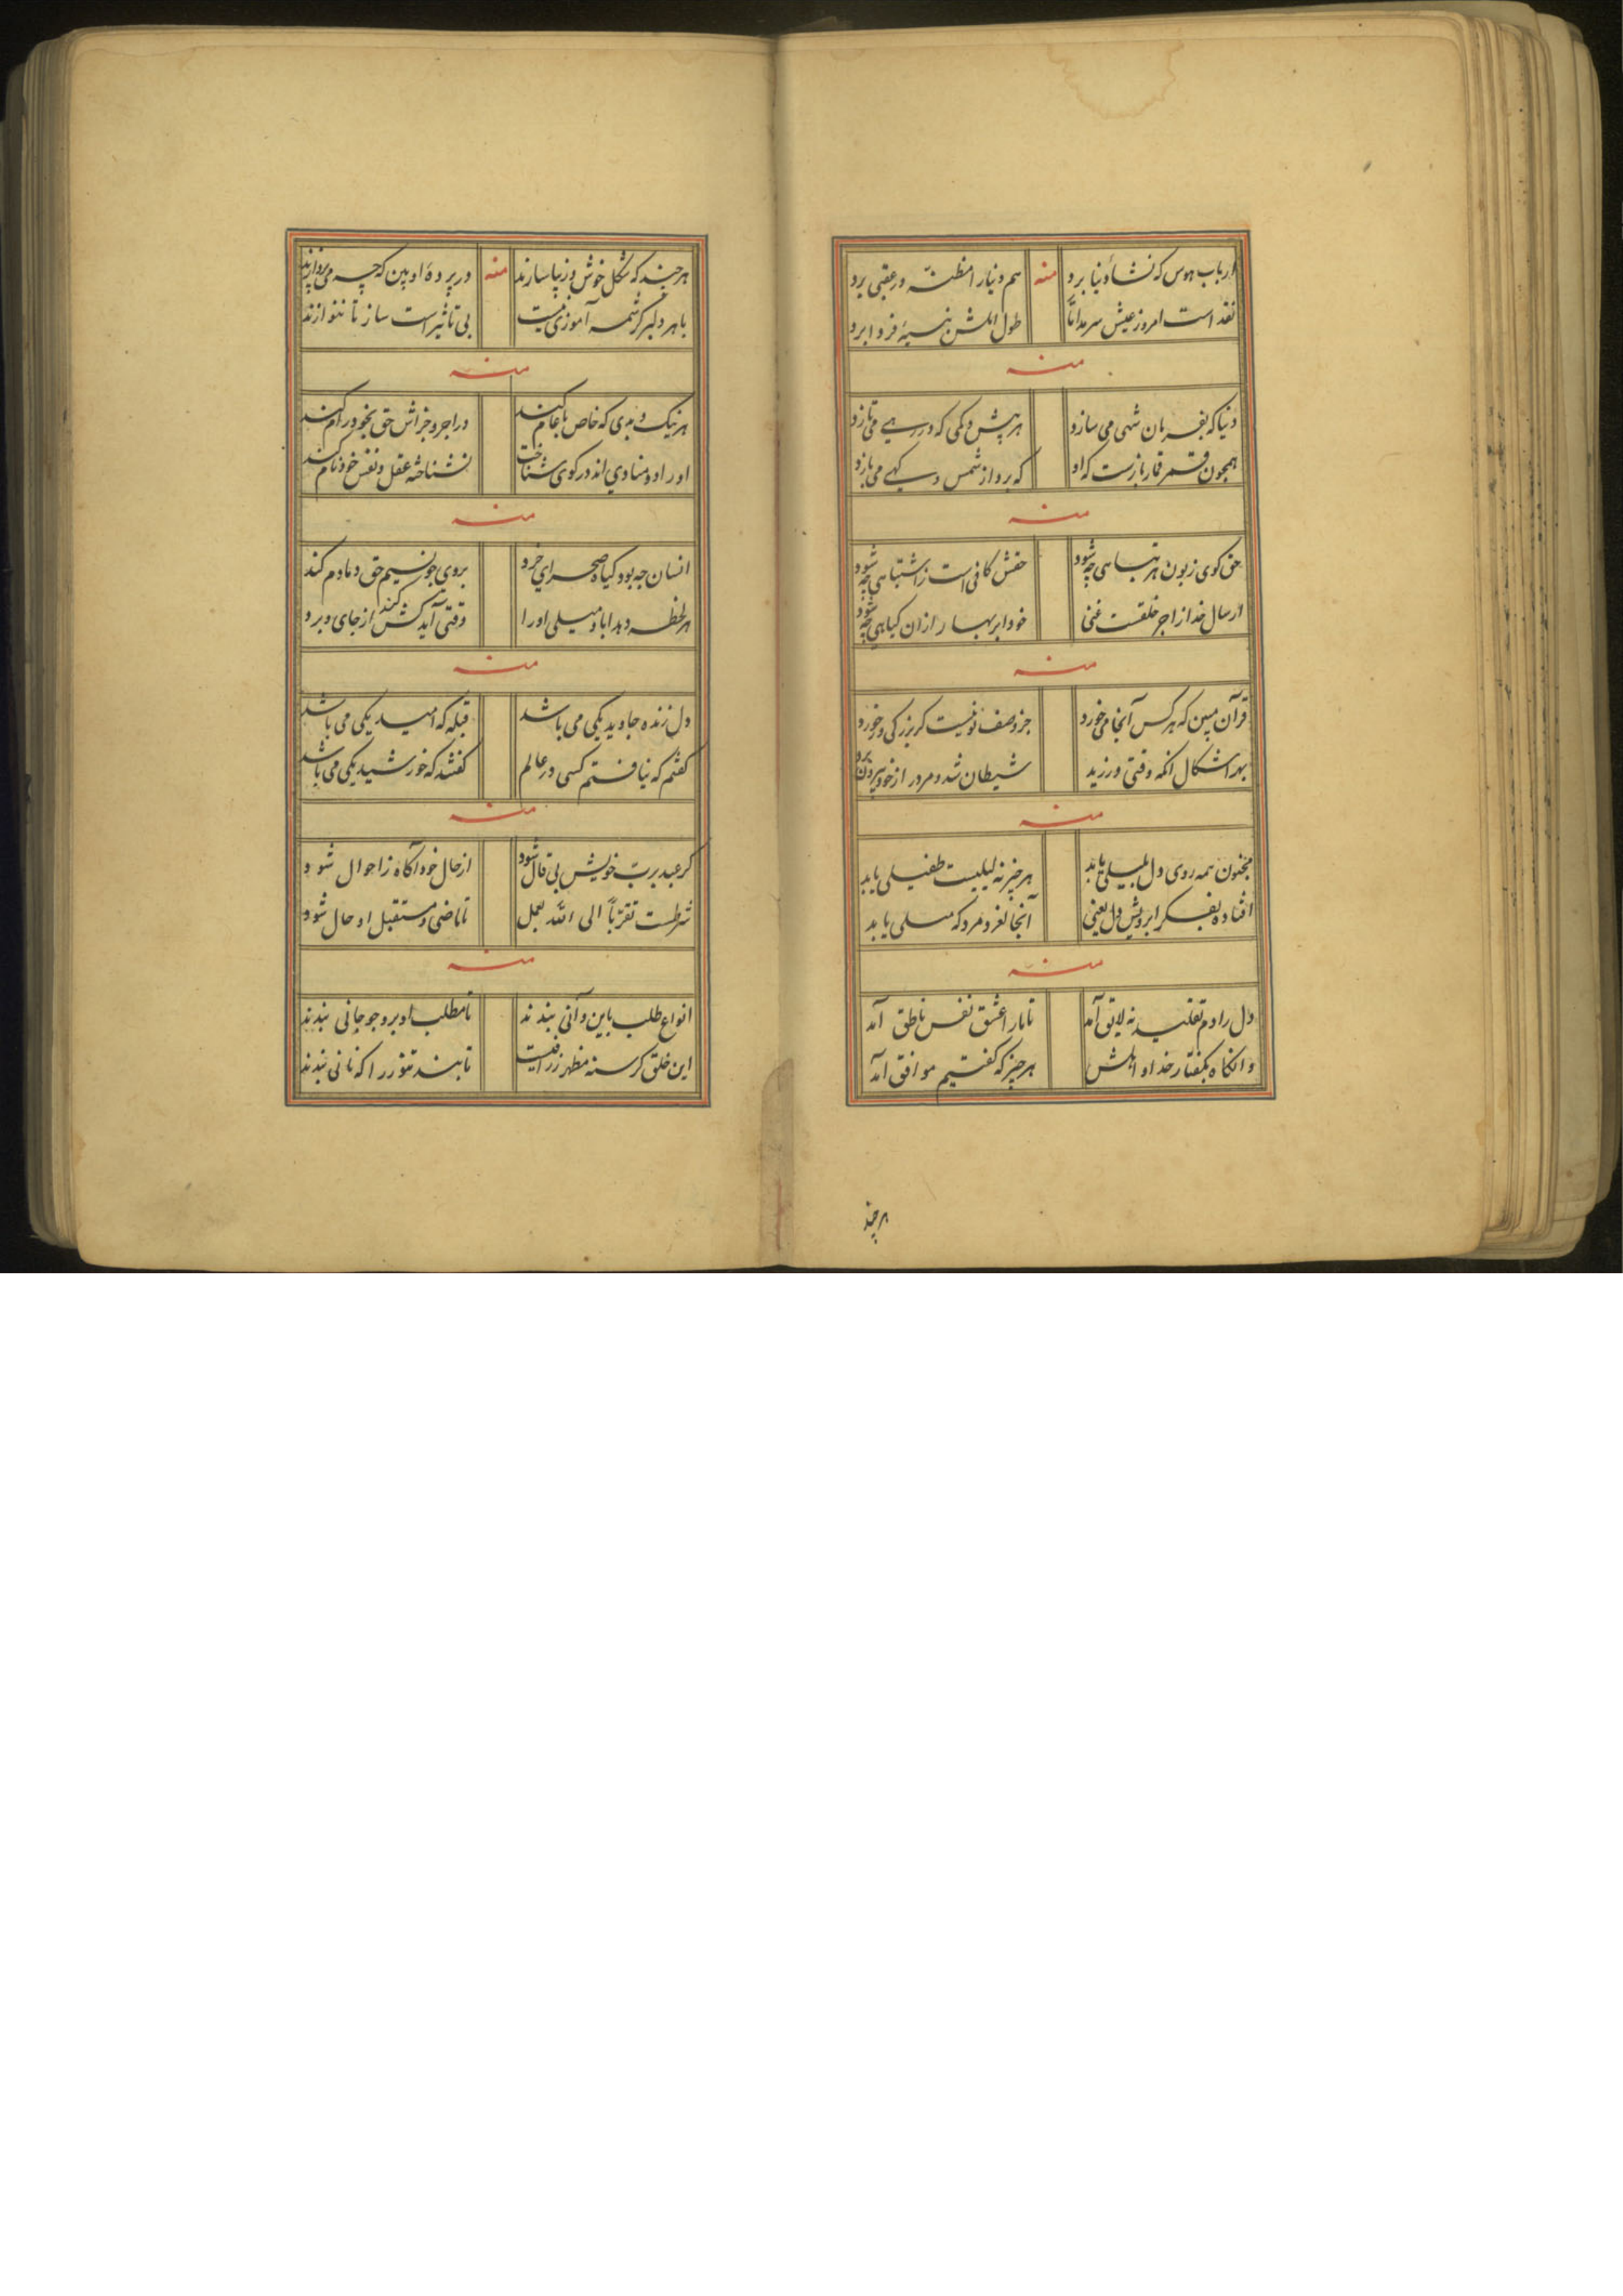 ارباب هوس که نشاء دنیا برد منه هم دنیا را مظنه در عقبی برد
نقد است امروز عیش سرمد اما طول املش نسیهٔ فردا برد
منه
دنیا که بفرمان شهی می سازد هر بیش و کمی که در رهی می تازد
همچون قمر قمار بازست که او که برد از شمس و کهی می بازد
منه
حق کوی زبون هر تباهی چه شود حقش کافی است زاشتباهی چه شود
ارسال خدا از اجر خلقست غنی خود ابر بهار از ان کیاهی چه شود
منه
قرآن مبین که هر کس آنجا می خورد جز وصف تو نیست کر بزرکی ور خورد
بهر اشکال انکه وقتی ورزید شیطان شد و مرور از خود بیرون برد
منه
مجنون همه روی دل بلیلی یابد هر چیز نه لیلیست طفیلی یابد
افتاده بفکر ابرویش دل یعنی آنجا لغزد مرد که میلی یابد
منه
دل را دم تقلید نه لایق آمد تا مار اعشق نفس ناطق آمد
وانکاه بکفتار خدا و اهلش هر چیز که کفتیم موافق آمد
هر چند
هر چند که شکل خوش و زیبا سازند منه در پردهٔ او ببین که چه می پردازند
با هر دلبر کرشمه آموزی نیست بی تاثیر است ساز تا ننوازند
منه
هر نیک و بدی که خاص با عام کنند در اجر و جزاش حق بخود رام کنند
او را دو منادی اند در کوی شناخت نشناخته عقل و نفس خود نام کنند
منه
انسان چه بود کیاه صحرای خرد بروی چو نسیم حق دمادم کند
هر لحظه دهد اباد میلی او را وقتی آید کش کند از جای و برد
منه
دل زنده جاوید یکی می باشد قبله که امید یکی می باشد
کفتم که نیافتم کسی در عالم کفتند که خورشید یکی می باشد
منه
کر عبد برب خویش بی قال شود از حال خود آکاه زاحوال شود
شرطست تقرباً الی الله بعمل تا ماضی و مستقبل او حال شود
منه
انواع طلب باین و آنی بندند تا مطلب او بر وجو جانی بندند
این خلق کرسنه مظهر رزاقیست تا بند تنور را که نانی بندند